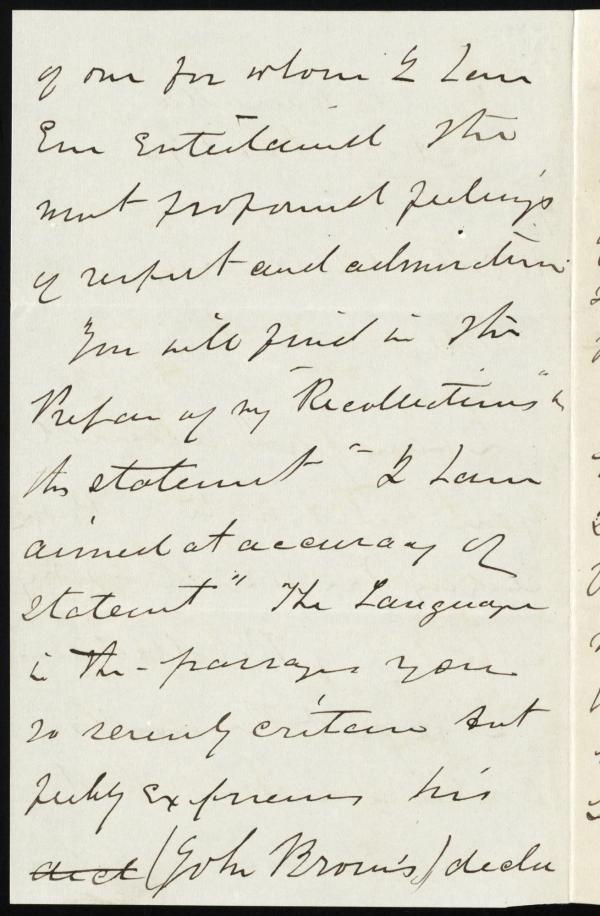 of one for whom I have
Ever Entertained the
most profound feelings
of respect and admiration
You will find in the
Preface of my "Recollections"
the statement "I have
aimed at accuracy of
statement" The Language
in the passages you
so severely criticise but
feebly Expresses his
did (John Brown's) decla